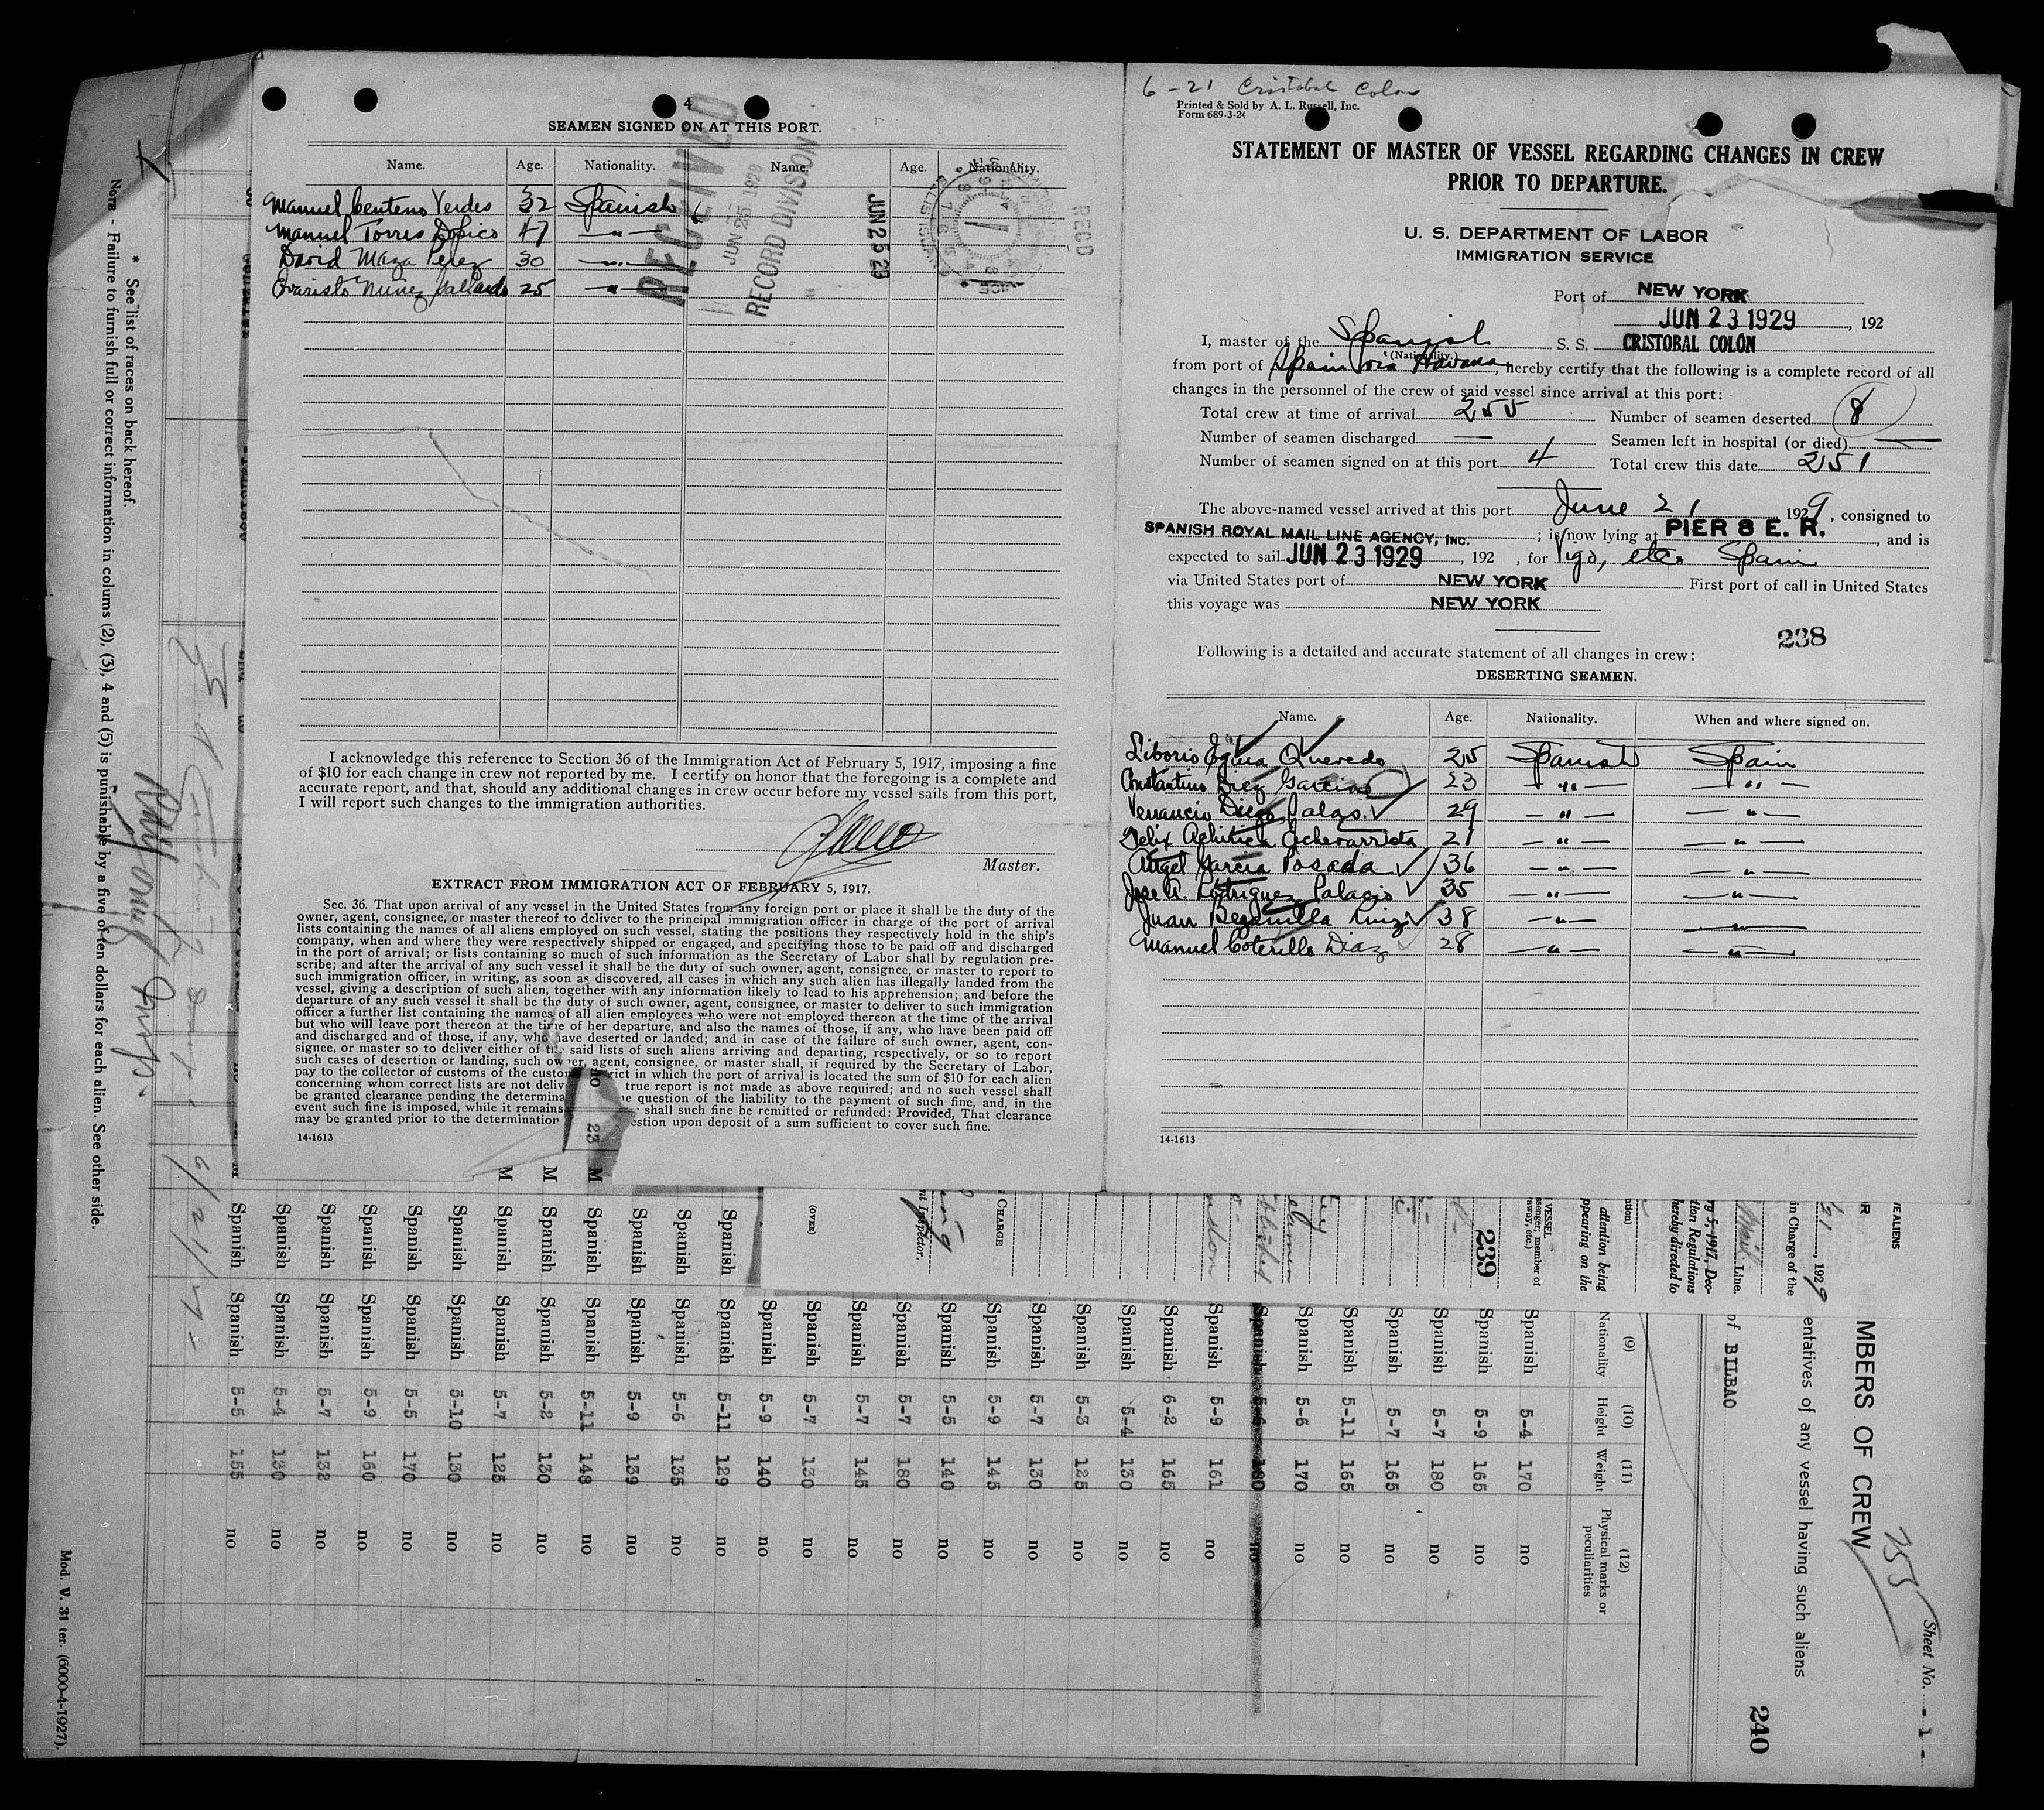 4
SEAMEN SIGNED ON AT THIS PORT.
Name. Age. Nationality. Name. Age. Nationality.
Manuel Centeno Verdes 32 Spanish
Manuel Torres Dopico 47 — " —
David Maza Perez 30 — " —
Evaristo Nuñez Gallardo 25 — " —
RECEIVED
JUN 25 1929
RECORD DIVISION
JUN 25 29
RECD
I acknowledge this reference to Section 36 of the Immigration Act of February 5, 1917, imposing a fine
of $10 for each change in crew not reported by me. I certify on honor that the foregoing is a complete and
accurate report, and that, should any additional changes in crew occur before my vessel sails from this port,
I will report such changes to the immigration authorities.
Master.
EXTRACT FROM IMMIGRATION ACT OF FEBRUARY 5, 1917.
Sec. 36. That upon arrival of any vessel in the United States from any foreign port or place it shall be the duty of the
owner, agent, consignee, or master thereof to deliver to the principal immigration officer in charge of the port of arrival
lists containing the names of all aliens employed on such vessel, stating the positions they respectively hold in the ship's
company, when and where they were respectively shipped or engaged, and specifying those to be paid off and discharged
in the port of arrival; or lists containing so much of such information as the Secretary of Labor shall by regulation pre-
scribe; and after the arrival of any such vessel it shall be the duty of such owner, agent, consignee, or master to report to
such immigration officer, in writing, as soon as discovered, all cases in which any such alien has illegally landed from the
vessel, giving a description of such alien, together with any information likely to lead to his apprehension; and before the
departure of any such vessel it shall be the duty of such owner, agent, consignee, or master to deliver to such immigration
officer a further list containing the names of all alien employees who were not employed thereon at the time of the arrival
but who will leave port thereon at the time of her departure, and also the names of those, if any, who have been paid off
and discharged and of those, if any, who have deserted or landed; and in case of the failure of such owner, agent, con-
signee, or master so to deliver either of the said lists of such aliens arriving and departing, respectively, or so to report
such cases of desertion or landing, such owner, agent, consignee, or master shall, if required by the Secretary of Labor,
pay to the collector of customs of the custom rict in which the port of arrival is located the sum of $10 for each alien
concerning whom correct lists are not deliv true report is not made as above required; and no such vessel shall
be granted clearance pending the determina e question of the liability to the payment of such fine, and, in the
event such fine is imposed, while it remains shall such fine be remitted or refunded: Provided, That clearance
may be granted prior to the determination estion upon deposit of a sum sufficient to cover such fine.
14-1613
6-21 Cristobal Colon
Printed & Sold by A. L. Russell, Inc.
Form 689-3-2
STATEMENT OF MASTER OF VESSEL REGARDING CHANGES IN CREW
PRIOR TO DEPARTURE.
U. S. DEPARTMENT OF LABOR
IMMIGRATION SERVICE
Port of NEW YORK
JUN 23 1929, 192
I, master of the Spanish S. S. CRISTOBAL COLON
(Nationality.)
from port of Spain via Havana, hereby certify that the following is a complete record of all
changes in the personnel of the crew of said vessel since arrival at this port:
Total crew at time of arrival 255 Number of seamen deserted 8
Number of seamen discharged — Seamen left in hospital (or died) —
Number of seamen signed on at this port 4 Total crew this date 251
The above-named vessel arrived at this port June 21 1929, consigned to
SPANISH ROYAL MAIL LINE AGENCY, INC. ; is now lying at PIER 8 E. R., and is
expected to sail JUN 23 1929, 192 , for Vigo, etc. Spain
via United States port of NEW YORK First port of call in United States
this voyage was NEW YORK
238
Following is a detailed and accurate statement of all changes in crew:
DESERTING SEAMEN.
Name. Age. Nationality. When and where signed on.
Liborio Quevedo 25 Spanish Spain
Constantino Diez Garcia 23 — " — — " —
Venancio Diego Salas 29 — " — — " —
Felix Achutica Echevarrieta 21 — " — — " —
Angel Garcia Posada 36 — " — — " —
Jose A. Rodriguez Palacio 35 — " — — " —
Juan Bezanilla Ruiz 38 — " — — " —
Manuel Coterillo Diaz 28 — " — — " —
14-1613
* See list of races on back hereof.
Note - Failure to furnish full or correct information in colums (2), (3), 4 and (5) is punishable by a five of ten dollars for each alien. See other side.
6/21/29
Mod. V. 31 ter. (6000-4-1927).
(OVER)
CHARGE
nt Inspector.
239
VESSEL
senger, member of
away, etc.)
attention being
ppearing on the
ry 5, 1917, Dec-
tion Regulations
hereby directed to
Line.
in Charge of the
, 1929
VE ALIENS
MBERS OF CREW
entatives of any vessel having such aliens
of BILBAO
255
Sheet No. - 1 -
240
(9) Nationality (10) Height (11) Weight (12) Physical marks or peculiarities
Spanish 5-4 170 no
Spanish 5-9 165 no
Spanish 5-7 180 no
Spanish 5-7 165 no
Spanish 5-11 165 no
Spanish 5-6 170 no
Spanish 180 no
Spanish 5-9 161 no
Spanish 6-2 165 no
Spanish 5-4 130 no
Spanish 5-3 125 no
Spanish 5-7 130 no
Spanish 5-9 145 no
Spanish 5-5 140 no
Spanish 5-7 180 no
Spanish 5-7 145 no
Spanish 5-7 130 no
Spanish 5-9 140 no
Spanish Spanish 5-11 129 no
Spanish Spanish 5-6 135 no
Spanish Spanish 5-9 139 no
no 23 M Spanish Spanish 5-11 148 no
M Spanish Spanish 5-2 130 no
M Spanish Spanish 5-7 125 no
Spanish Spanish 5-10 130 no
Spanish Spanish 5-5 170 no
Spanish Spanish 5-9 160 no
Spanish Spanish 5-7 132 no
Spanish Spanish 5-4 130 no
M Spanish Spanish 5-5 155 no